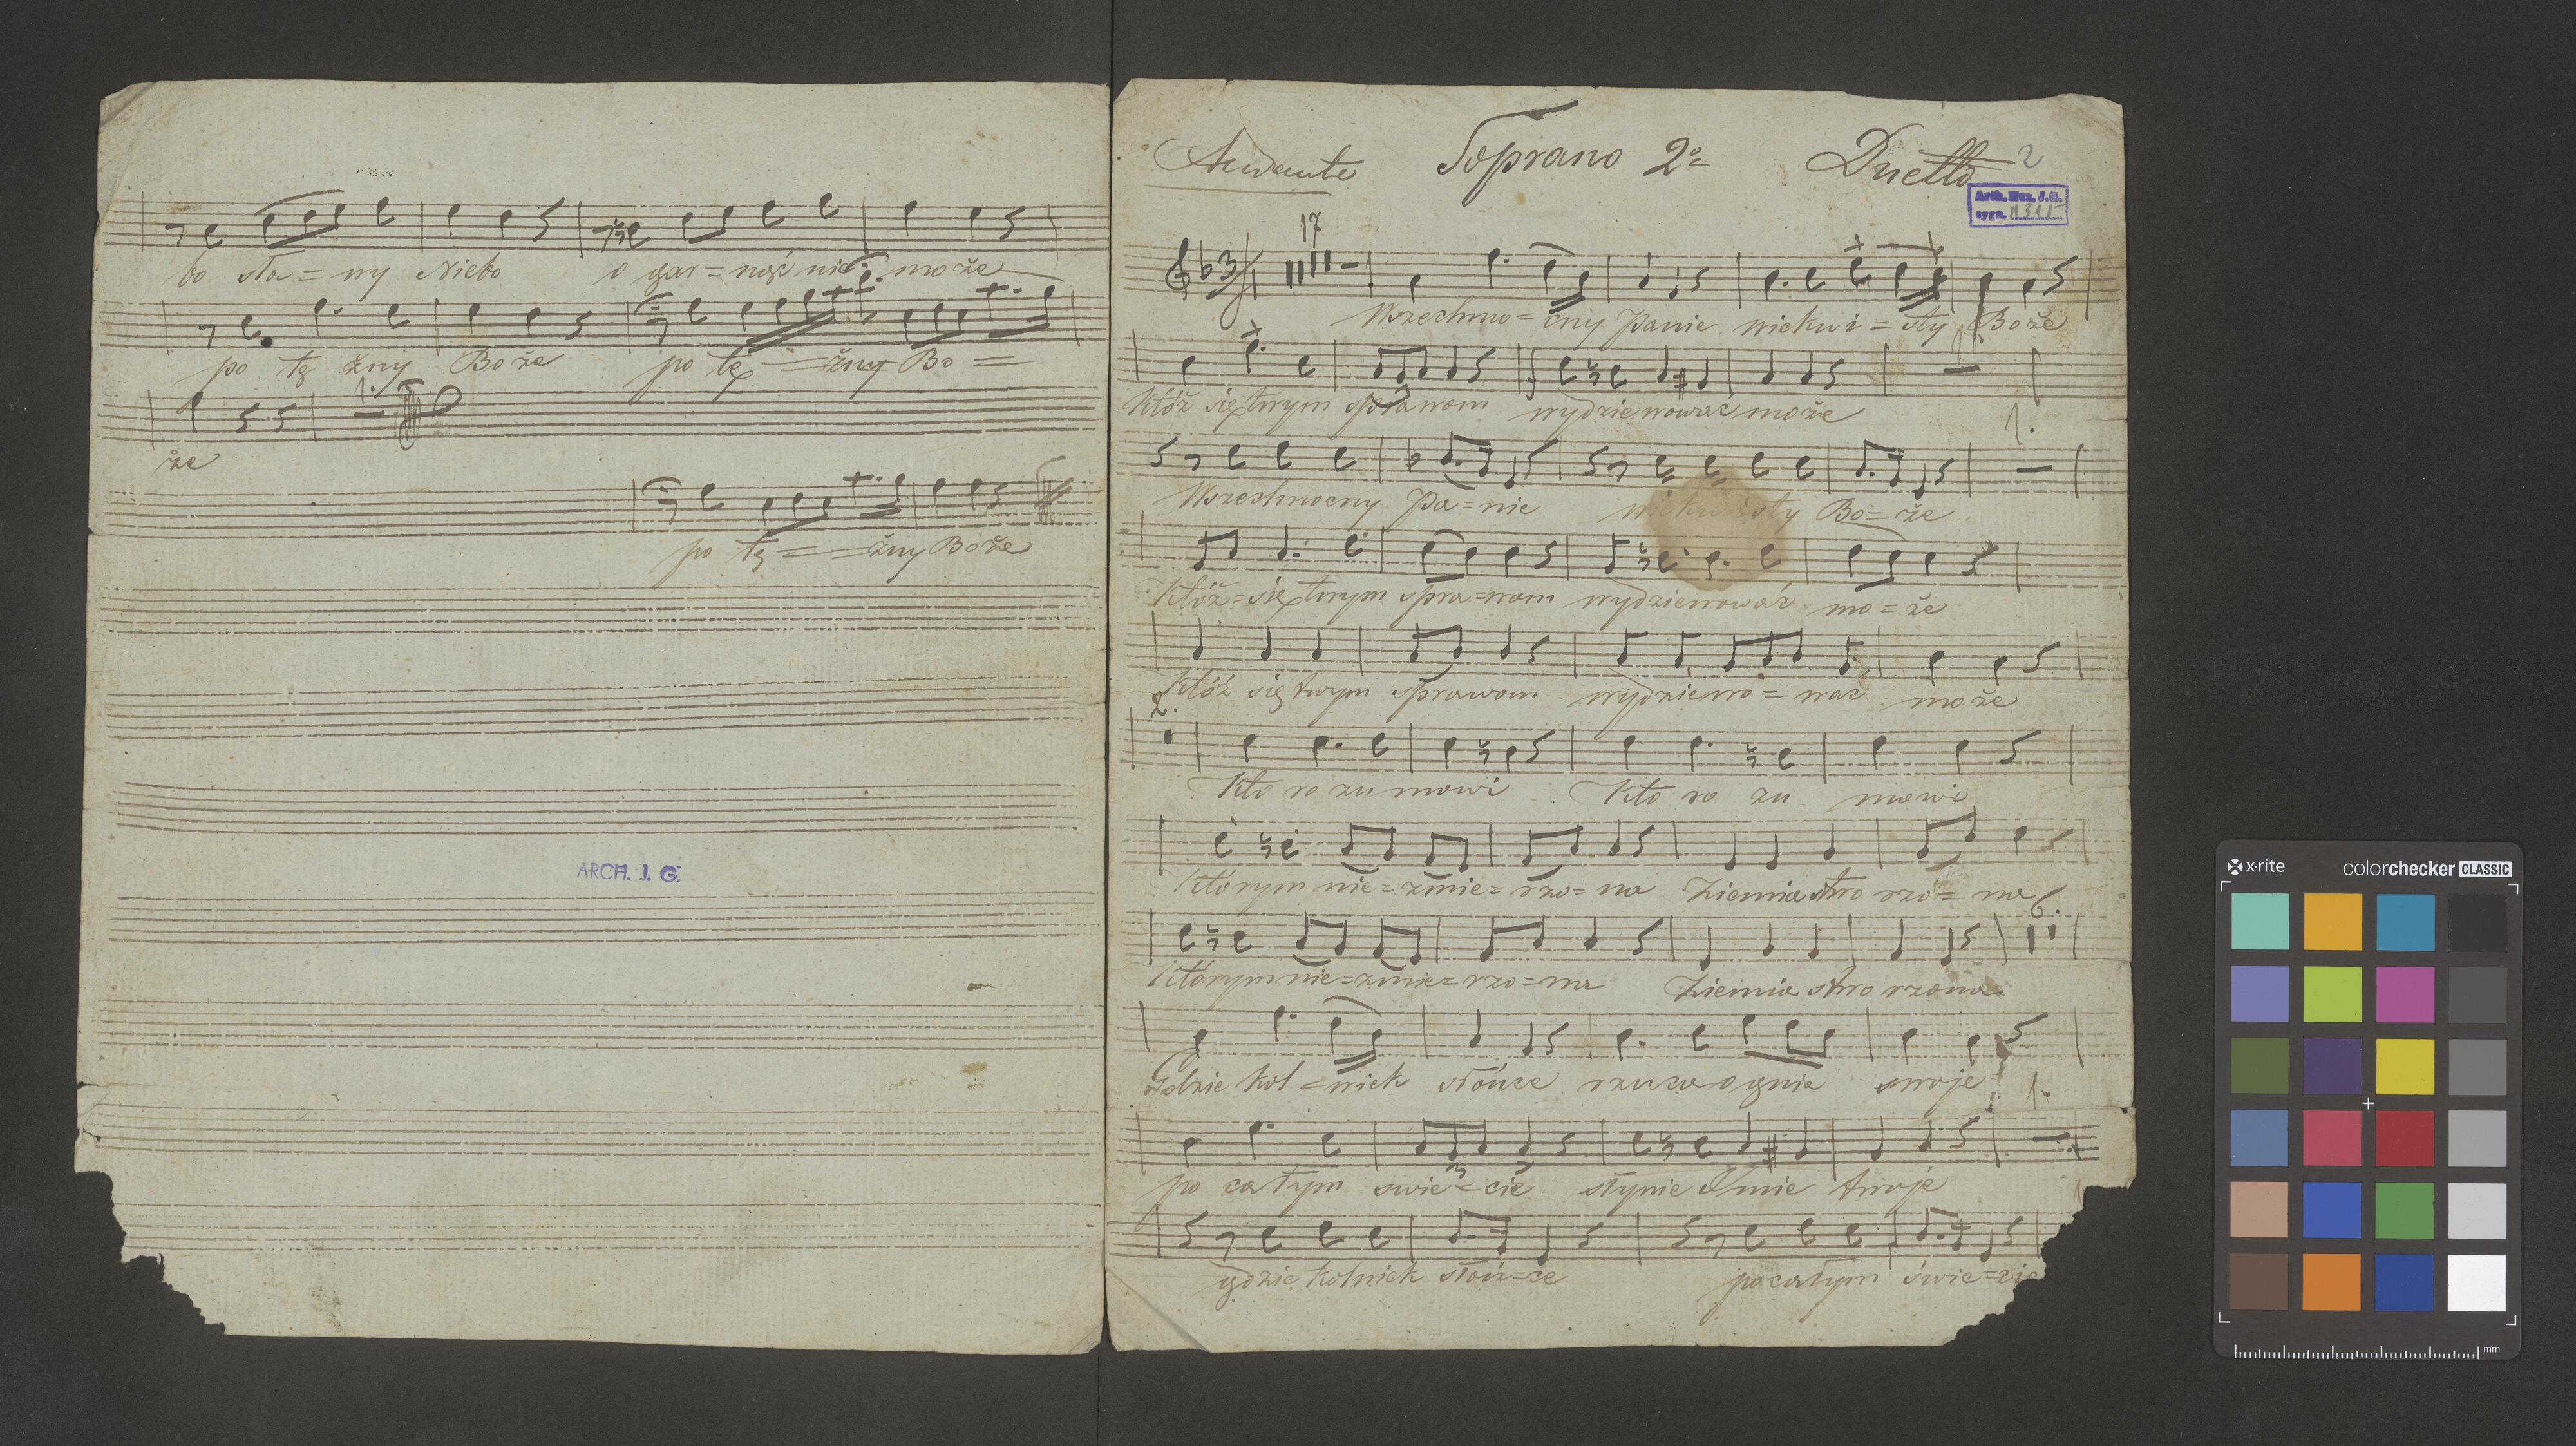 bo sła = ny Niebo o gar = nąć nie może
po tę żny Boże po tę = żny Bo =
1.
że
po tę = = żny Boże
ARCH. J. G.
Andante Soprano 2º Duetto 2
Arch. Muz. J. G.
sygn.
17
Wszechmo = cny Panie wiekui = sty Boże
Któż się twym sprawom wydziwować może
1.
Wszechmocny Pa = nie wiekuisty Bo = że
Któż = się twym spra = wom wydziwować mo = że
Któż się twym sprawom wydziwo = wać może
2.
Kto ro zu mowi Kto ro zu mowi
Którym nie = zmie = rzo = na Ziemia stwo rzo = na
6.
Którym nie = zmie = rzo = na Ziemia stwo rzona
Gdzie kol = wiek słońce rzuca ognie swoje
1.
po ca łym swie = cie słynie Imie twoje
3
gdzie kolwiek słoń = ce po całym świe = cie